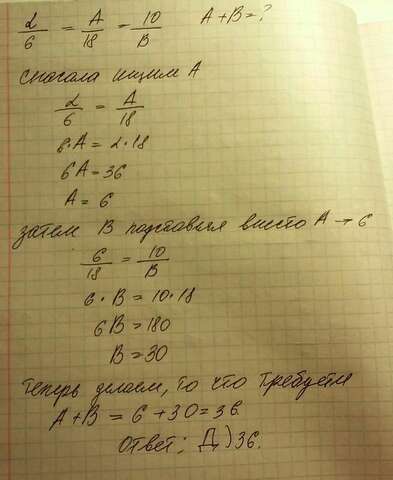 2/6 = A/18 = 10/B A+B=?
сначала ищим A
2/6 = A/18
6·A = 2·18
6A = 36
A = 6
затем B подставим вместо A → 6
6/18 = 10/B
6·B = 10·18
6B = 180
B = 30
теперь делаем, то что требуется
A+B = 6+30 = 36.
Ответ: Д) 36.